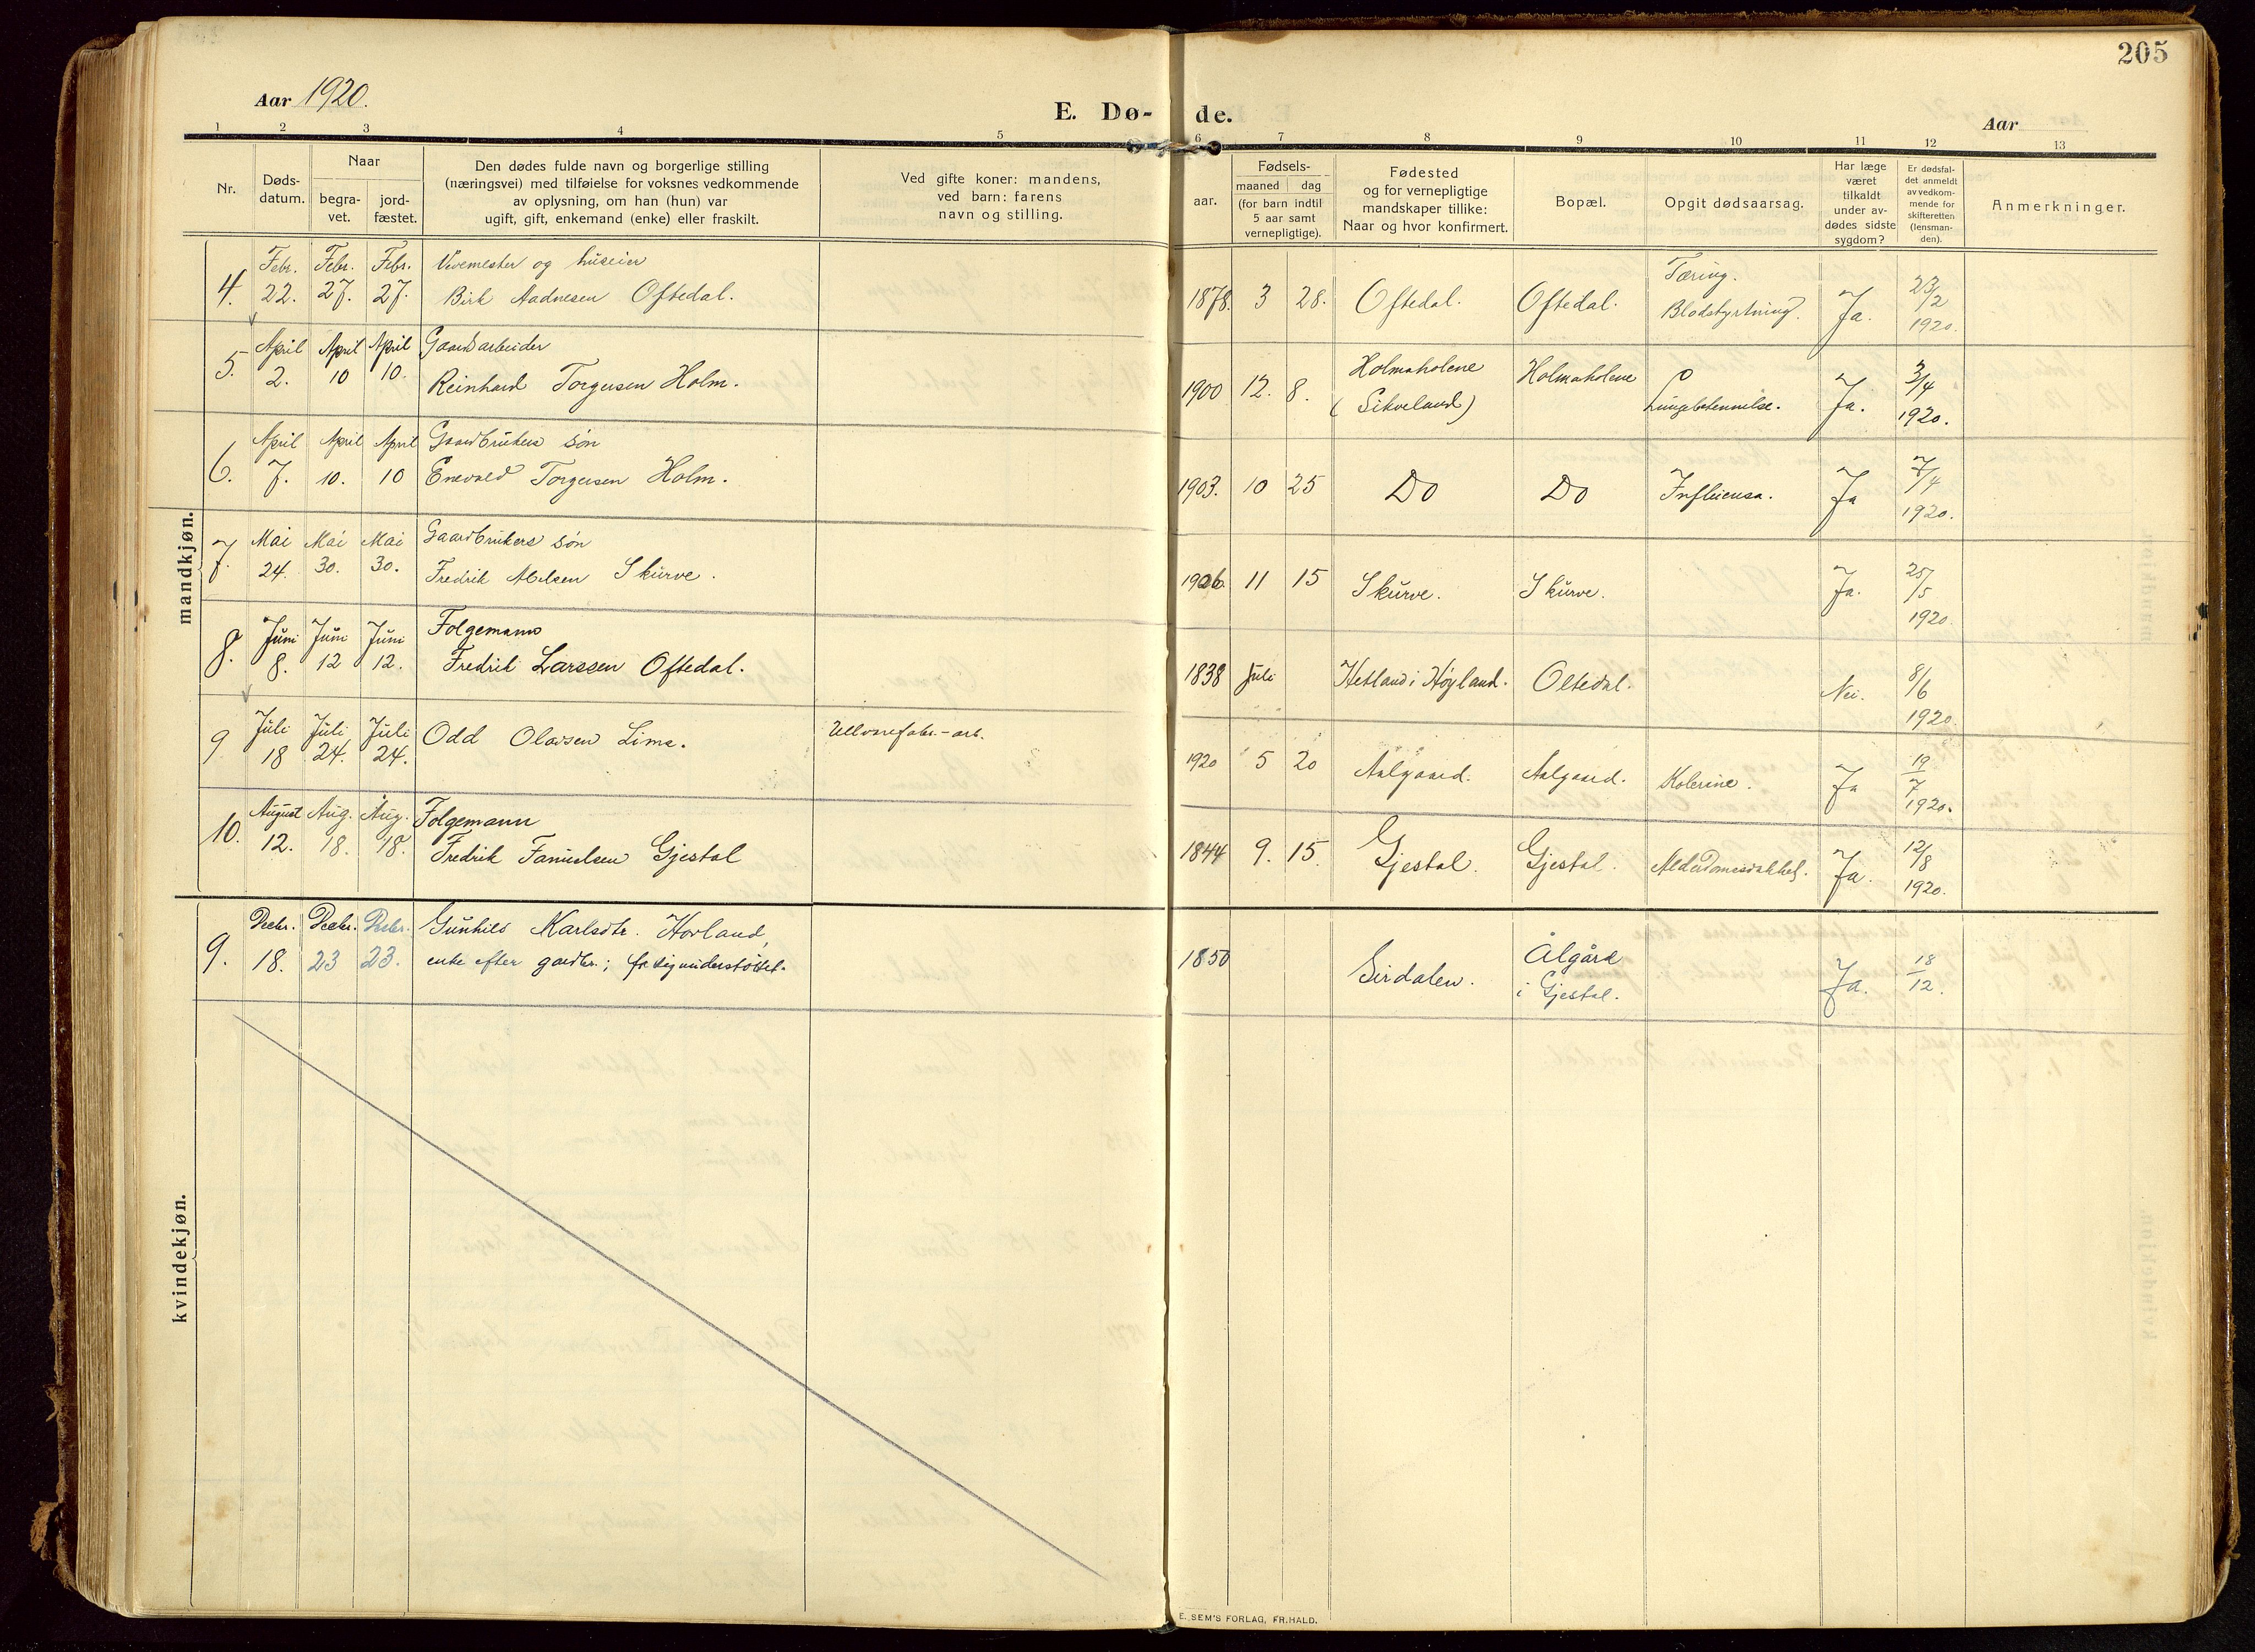 205
Aar 1920.
E. Dø- de.
Aar
1 2 3 4 5 6 7 8 9 10 11 12 13
Nr.
Døds-
datum.
Naar
begra-
vet.
jord-
fæstet.
Den dødes fulde navn og borgerlige stilling
(næringsvei) med tilføielse for voksnes vedkommende
av oplysning, om han (hun) var
ugift, gift, enkemand (enke) eller fraskilt.
Ved gifte koner: mandens,
ved barn: farens
navn og stilling.
Fødsels-
aar.
maaned dag
(for barn indtil
5 aar samt
vernepligtige).
Fødested
og for vernepligtige
mandskaper tillike:
Naar og hvor konfirmert.
Bopæl.
Opgit dødsaarsag.
Har læge
været
tilkaldt
under av-
dødes sidste
sygdom?
Er dødsfal-
det anmeldt
av vedkom-
mende for
skifteretten
(lensman-
den).
Anmerkninger.
mandkjøn.
Febr. Febr. Febr. Vevemester og huseier
4. 22. 27. 27. Birk Aadnesen Oftedal.
1878. 3 28. Oftedal. Oftedal. Tæring. Blodstyrtning. Ja. 23/2 1920.
April April April Gaardarbeider
5. 2. 10 10. Reinhard Torgersen Holm.
1900 12. 8. Holmaholene (Sikveland) Holmaholene Lungebetennelse. Ja. 3/4 1920.
April April April Gaardbrukers søn
6. 7. 10. 10 Enevald Torgersen Holm.
1903. 10 25 Do Do Influensa. Ja 7/4 1920.
Mai Mai Mai Gaardbrukers søn
7. 24. 30. 30. Fredrik Abelsen Skurve.
1906. 11 15 Skurve. Skurve. Ja. 25/5 1920.
Juni Juni Juni Folgemann
8. 8. 12 12. Fredrik Larssen Oftedal.
1838 Juli Hetland i Høyland. Oltedal. Nei. 8/6 1920
Juli Juli Juli
9 18 24. 24. Odd Olavsen Lima. Ullvarefabr.-arb.
1920 5 20 Aalgaard. Aalgaard. Kolerine. Ja 19/7 1920.
August Aug. Aug. Folgemann
10. 12. 18. 18. Fredrik Fanuelsen Gjestal
1844 9. 15. Gjestal. Gjestal. Alderdomssvakhet. Ja. 12/8 1920.
kvindekjøn.
Decbr. Decbr. Decbr. Gunhild Karlsdtr. Hovland,
9. 18. 23 23. enke efter gardbr.; fattigunderstøttet.
1850 Sirdalen. Ålgård i Gjestal. Ja. 18/12.
E. SEM'S FORLAG, FR.HALD.